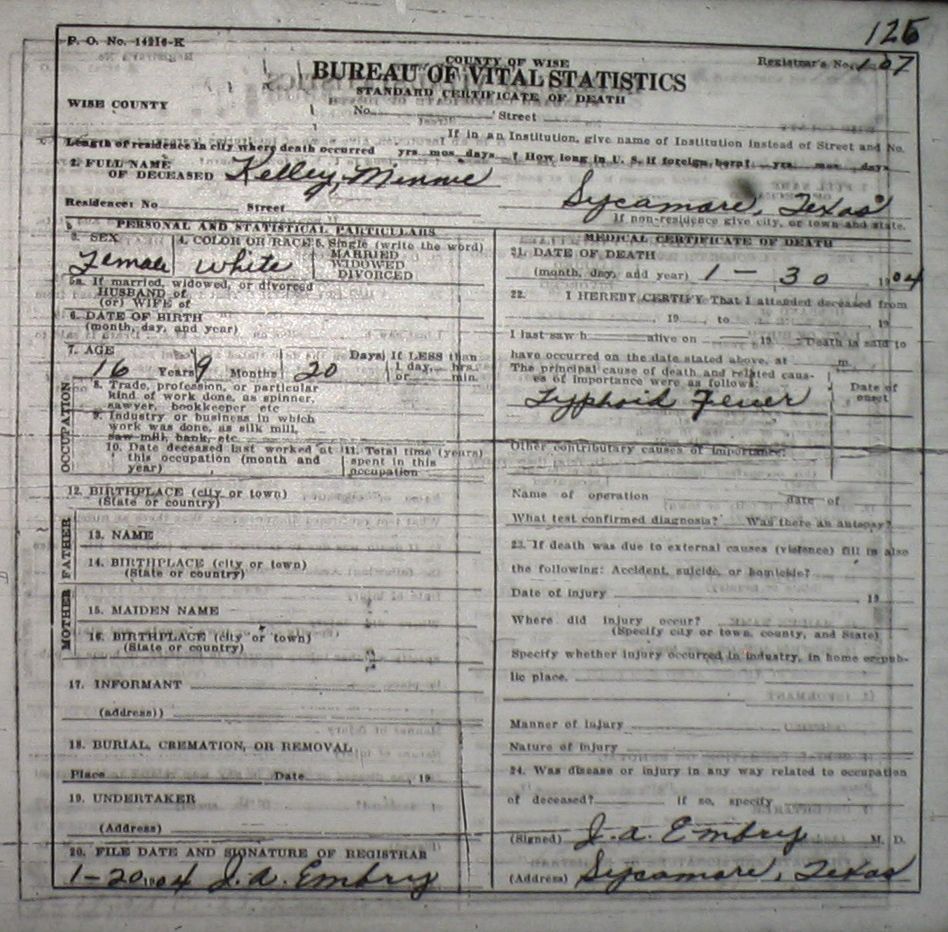 125
P. O. No. 14216-K
COUNTY OF WISE
Registrar's No. 107
BUREAU OF VITAL STATISTICS
STANDARD CERTIFICATE OF DEATH
WISE COUNTY
No. Street
If in an Institution, give name of Institution instead of Street and No.
Length of residence in city where death occurred yrs. mos. days ? How long in U. S. if foreign born? yrs. mos. days
2. FULL NAME
OF DECEASED Kelley, Minnie
Sycamore, Texas
Residence: No Street
If non-residence give city, or town and state.
PERSONAL AND STATISTICAL PARTICULARS
3. SEX 4. COLOR OR RACE 5. Single (write the word)
MARRIED
WIDOWED
DIVORCED
Female White
5a. If married, widowed, or divorced
HUSBAND of
(or) WIFE of
6. DATE OF BIRTH
(month, day, and year)
7. AGE Days If LESS than
16 Years 9 Months 20 1 day, hrs.
or min.
OCCUPATION
8. Trade, profession, or particular
kind of work done, as spinner,
sawyer, bookkeeper etc
9. Industry or business in which
work was done, as silk mill,
saw mill, bank, etc
10. Date deceased last worked at
this occupation (month and
year)
11. Total time (years)
spent in this
occupation
12. BIRTHPLACE (city or town)
(State or country)
FATHER
13. NAME
14. BIRTHPLACE (city or town)
(State or country)
MOTHER
15. MAIDEN NAME
16. BIRTHPLACE (city or town)
(State or country)
17. INFORMANT
(address))
18. BURIAL, CREMATION, OR REMOVAL
Place Date , 19
19. UNDERTAKER
(Address)
20. FILE DATE AND SIGNATURE OF REGISTRAR
1-20 1904 J. A. Embry
MEDICAL CERTIFICATE OF DEATH
21. DATE OF DEATH
(month, day, and year) 1 - 30 1904
22. I HEREBY CERTIFY That I attended deceased from
, 19 , to 19
I last saw h alive on 19 . Death is said to
have occurred on the date stated above, at m.
The principal cause of death and related caus-
es of importance were as follows: Date of
onset
Typhoid Fever
Other contributary causes of importance:
Name of operation date of
What test confirmed diagnosis? Was there an autopsy?
23. If death was due to external causes (violence) fill in also
the following: Accident, suicide, or homicide?
Date of injury 19
Where did injury occur?
(Specify city or town, county, and State)
Specify whether injury occurred in industry, in home or pub-
lic place.
Manner of injury
Nature of injury
24. Was disease or injury in any way related to occupation
of deceased? if so, specify
(Signed) J. A. Embry M. D.
(Address) Sycamore, Texas